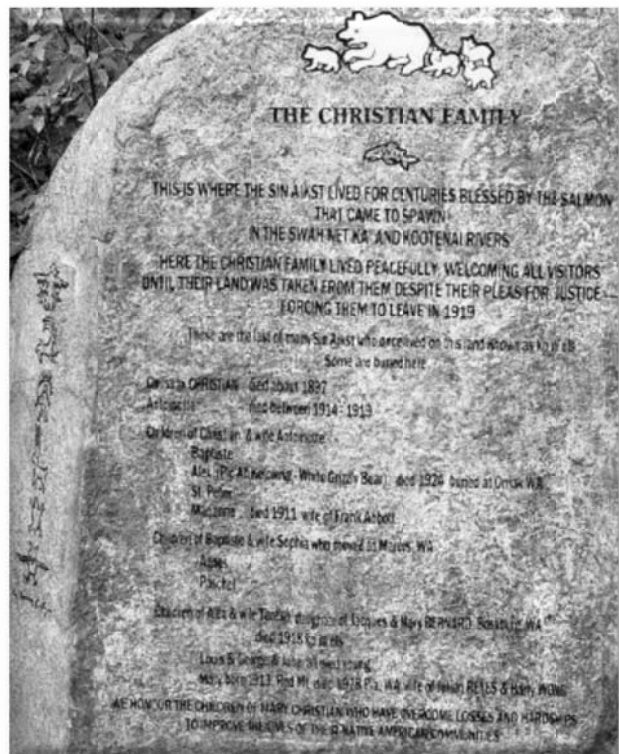 THE CHRISTIAN FAMILY
THIS IS WHERE THE SIN AIKST LIVED FOR CENTURIES BLESSED BY THE SALMON
THAT CAME TO SPAWN
IN THE SWAH NET KA AND KOOTENAI RIVERS
HERE THE CHRISTIAN FAMILY LIVED PEACEFULLY, WELCOMING ALL VISITORS
UNTIL THEIR LAND WAS TAKEN FROM THEM DESPITE THEIR PLEAS FOR JUSTICE
FORCING THEM TO LEAVE IN 1919
These are the last of many Sin Aikst who once lived on this land known as
Some are buried here
CHRISTIAN died about 1897
Antoinette died between 1914 - 1919
Children of Christian & wife Antoinette
Baptiste
Alex (Pic Ah Kelowna - White Grizzly Bear) died 1924 buried at Omak WA
St. Peter
Marianne died 1911 wife of Frank Abbott
Children of Baptiste & wife Sophia who moved to Marcus, WA
Agnes
Paschel
Children of Alex & wife daughter of Jacques & Mary BERNARD, WA
died 1918
Louis S, George & Julia all died young
Mary born 1913 WA wife of Julian REYES & Harry WONG
WE HONOUR THE CHILDREN OF MARY CHRISTIAN WHO HAVE OVERCOME LOSSES AND HARDSHIPS
TO IMPROVE THE LIVES OF THEIR NATIVE AMERICAN COMMUNITIES